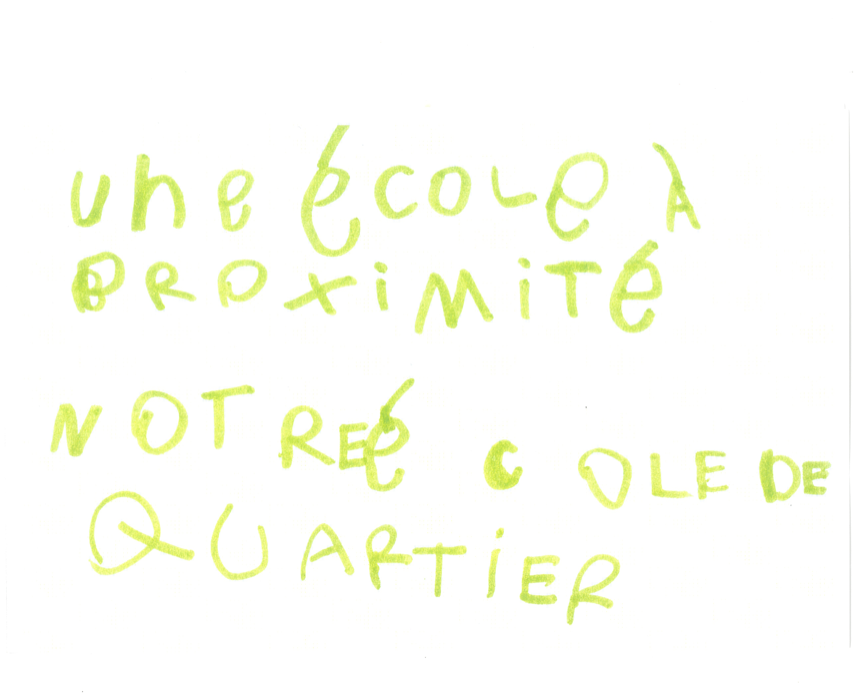 une école à
PROXiMiTé
NOTRE éCOLE DE
QUARTiER